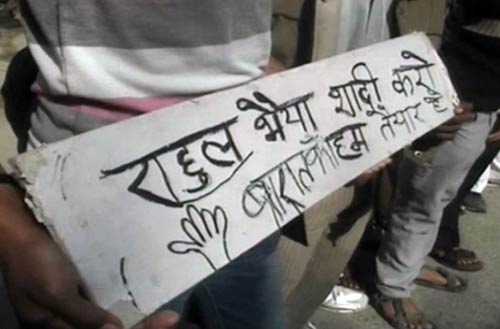 राहुल भैया शादी करो
बारात को हम तैयार है